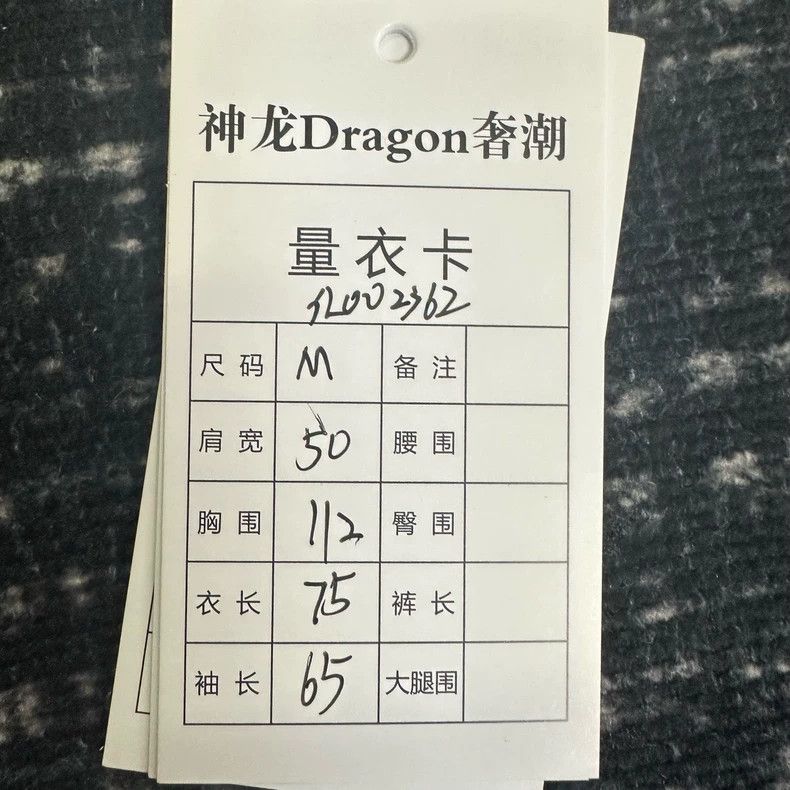 神龙Dragon奢潮
量衣卡
1L002362
尺码 M 备注
肩宽 50 腰围
胸围 112 臀围
衣长 75 裤长
袖长 65 大腿围